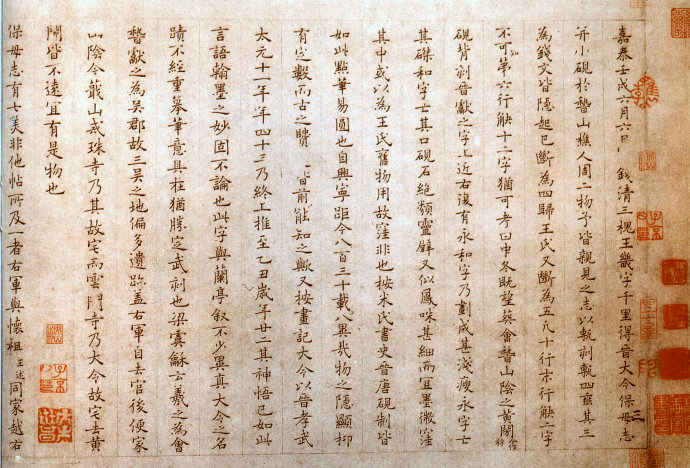 嘉泰壬戌六月六日錢清三槐王畿字千里得晉大令保母志
并小硯於稽山樵人周二物予皆親見之志以甎刻甎四垂其三
為錢文皆隱起已斷為四歸王氏又斷為五凡十行末行缺二字
不可知第六行缺十二字猶可考曰中冬既望葬會稽山陰之黃閍
硯背刻晉獻之字上近右復有永和字乃劃成甚淺瘦永字亡
其磔和字亡其口硯石絕類靈璧又似鳳咮甚細而宜墨微窪
其中或以為王氏舊物用故窪非也按米氏書史晉唐硯制皆
如此點筆易圓也自興寧距今八百三十載八異哉物之隱顯抑
有定數而古之賢皆前能知之歟又按畫記大令以晉孝武
太元十一年年四十三乃終上推至乙丑歲年廿二其神悟已如此
言語翰墨之妙固不論也此字與蘭亭敘不少異真大令之名
蹟不經重摹筆意具在猶勝定武刻也梁虞龢云羲之為會
稽獻之為吳郡故三吳之地偏多遺跡蓋右軍自去官後便家
山陰今蕺山戒珠寺乃其故宅而雲門寺乃大令故宅去黃
閍皆不遠宜有是物也
保母志有七美非他帖所及一者右軍與懷祖王述同家越右